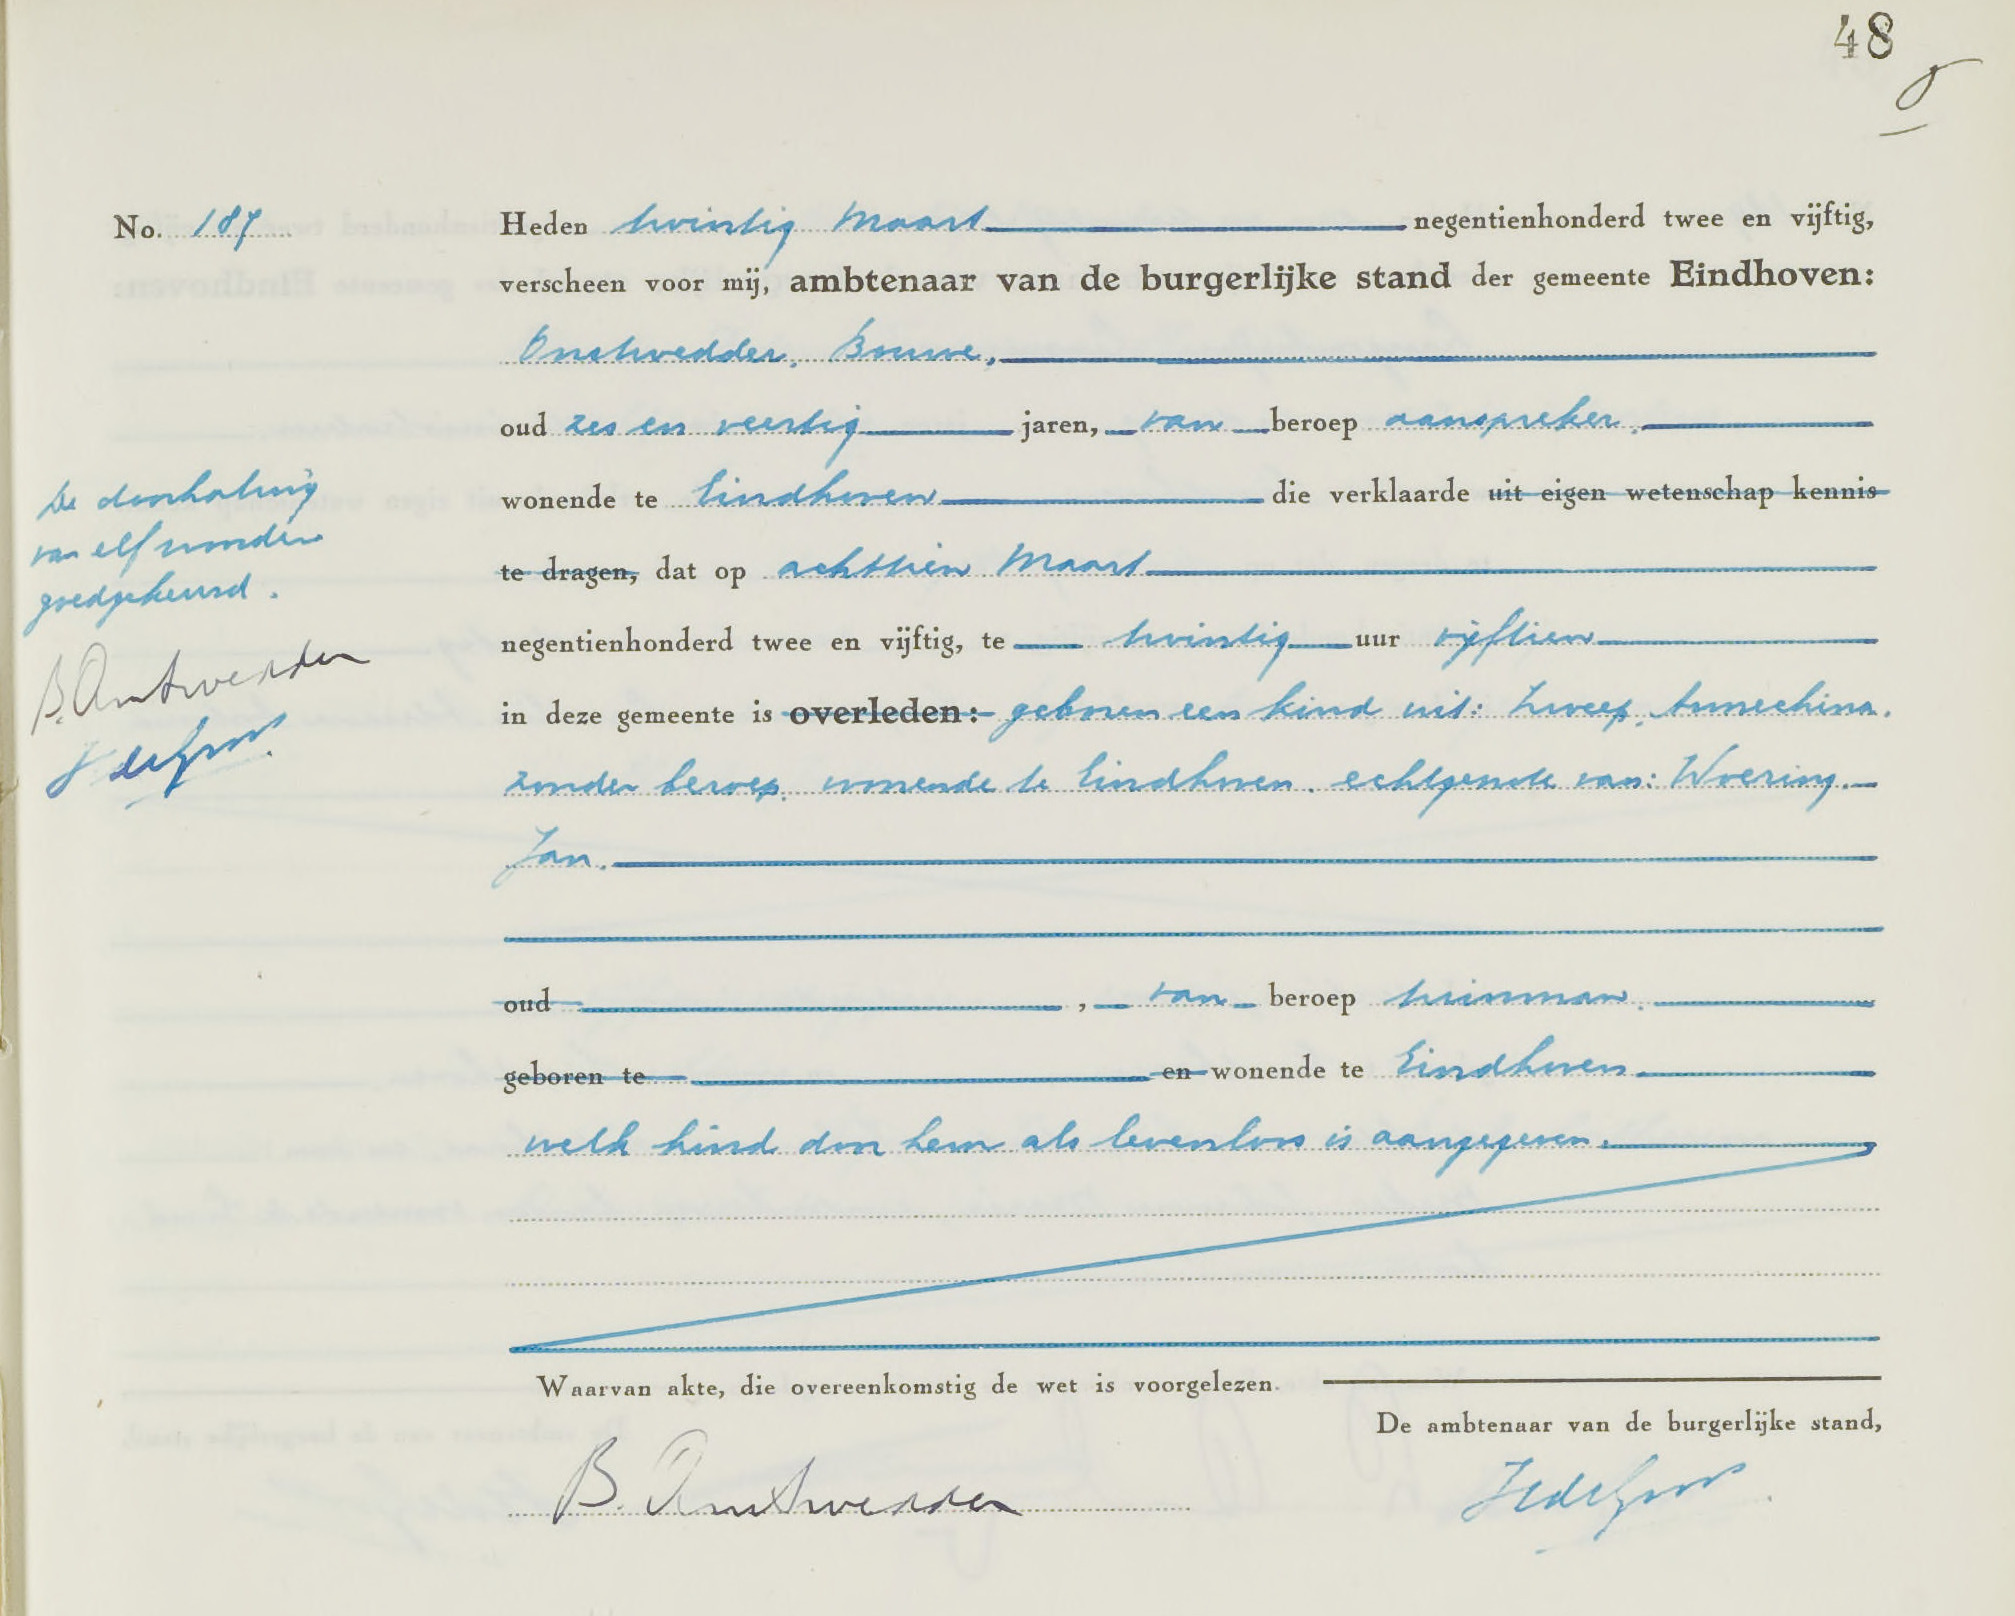 48
No. 187
Heden twintig Maart negentienhonderd twee en vijftig,
verscheen voor mij, ambtenaar van de burgerlijke stand der gemeente Eindhoven:
Onstwedder, Bouwe,
oud zes en veertig jaren, van beroep aanspreker,
wonende te Eindhoven die verklaarde uit eigen wetenschap kennis
te dragen, dat op achttien Maart
negentienhonderd twee en vijftig, te twintig uur vijftien
in deze gemeente is overleden: geboren een kind uit: Zweep, Annechina,
zonder beroep, wonende te Eindhoven, echtgenote van: Woering,
Jan,
oud , van beroep tuinman,
geboren te en wonende te Eindhoven
welk kind door hem als levenloos is aangegeven.
De doorhaling
van elf woorden
goedgekeurd.
B. Onstwedder
Waarvan akte, die overeenkomstig de wet is voorgelezen.
De ambtenaar van de burgerlijke stand,
B. Onstwedder